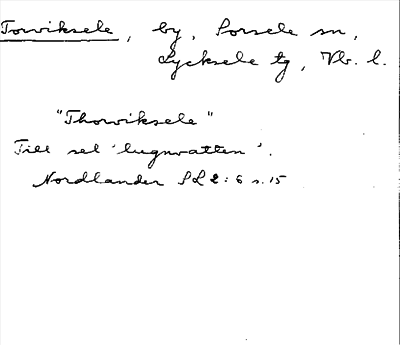 Torviksele, by, Sorsele sn,
Lycksele tg, Vb. l.
"Thorwiksele"
Till sel 'lugnvatten'.
Nordlander SL 2:6 s. 15